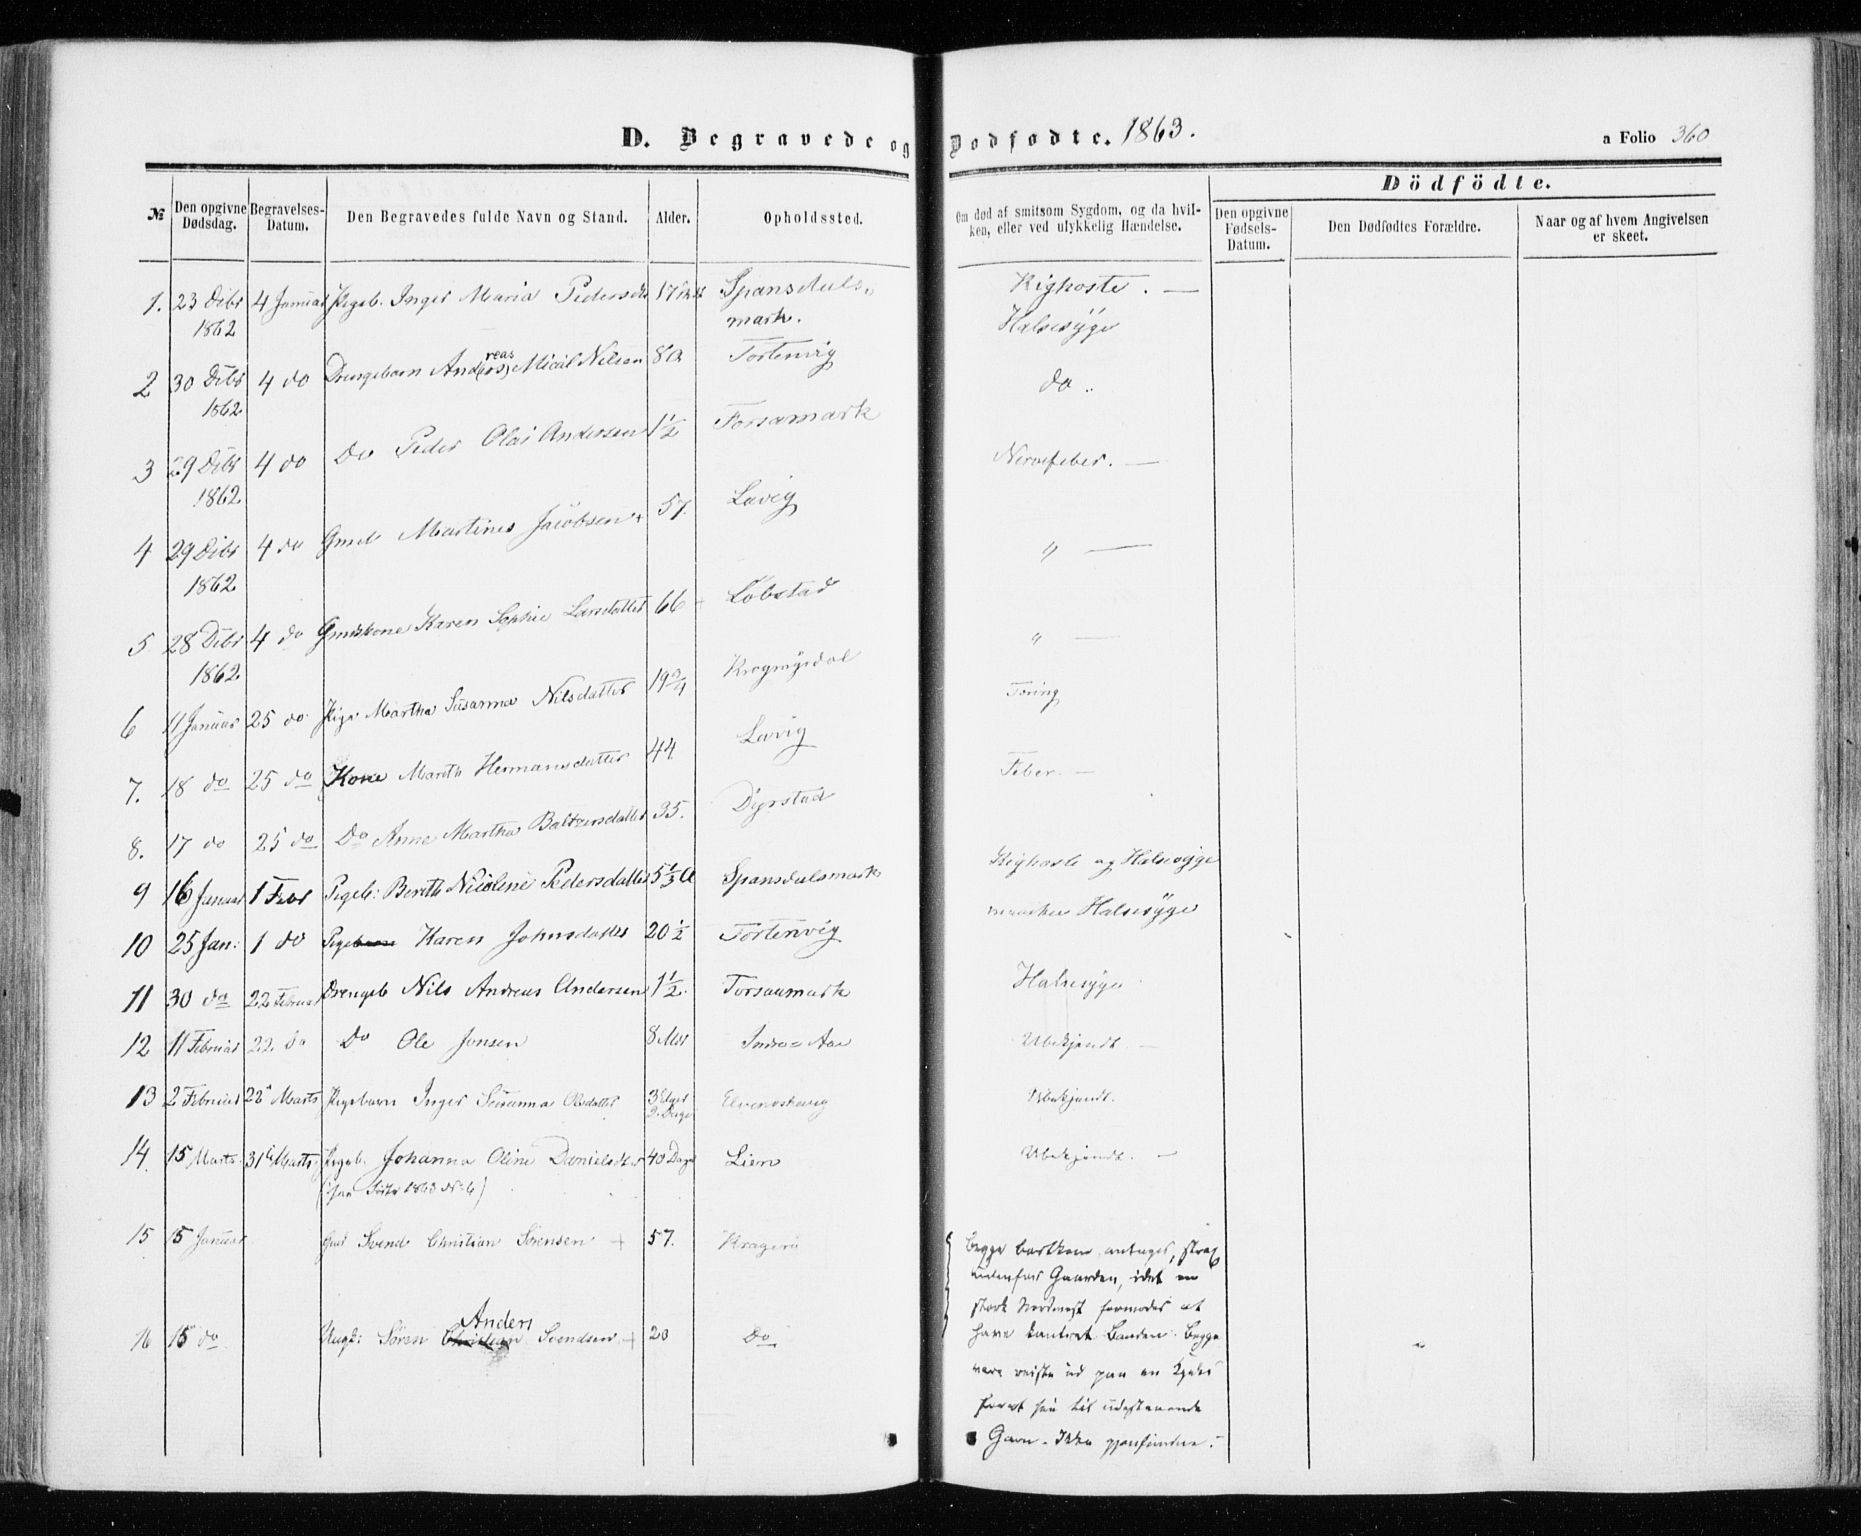 D. Begravede og Dødfødte. 1863.
a Folio 360
Dödfödte.
№ Den opgivne Dødsdag. Begravelses-Datum. Den Begravedes fulde Navn og Stand. Alder. Opholdssted. Om død af smitsom Sygdom, og da hvilken, eller ved ulykkelig Hændelse. Den opgivne Fødsels-Datum. Den Dødfødtes Forældre. Naar og af hvem Angivelsen er skeet.
1. 23 Dcbr 1862 4 Januar Pigeb. Inger Maria Pedersdtr 17 Spansdalsmark. Kighoste. —
Halsesÿge
2 30 Dcbr 1862 4 do Drengebarn Andreas (ers) Micäl Nilsen 8 a Tortenvig do
3 29 Dcbr 1862 4 do Do Peder Olai Andersen 1½ Forsamark Nervefeber. —
4 29 Dcbr 1862 4 do Gmd Martines Jacobsen + 57. Lavig " —
5 28 Dcbr 1862 4 do Gmdskone Karen Sophie Larsdatter 66 + Løbstad " —
6 11 Januar 25 do Pige Martha Susanna Nilsdatter 19 Krogmÿrdal Tæring
7. 18 do 25 do Kone Mareth Hermansdatter 44 Lavig Feber. —
8. 17 do 25 do Do Anne Martha Baltzersdatter 35. Dyrstad
9 16 Januar 1 Febr Pigeb: Bereth Nicoline Pedersdatter 5⅓ a Spansdalsmark Kighoste og Halsesyge
10 25 Jan: 1 do Pigebarn Karen Johnsdatter 20½ Tortenvig Halsesÿge
11 30 do 22 Februar Drengeb Nils Andreas Andersen 1½ Forsaamark Halsesÿge
12 11 Februar 22 do Do Ole Jonsen 8 Mdr Indre Aae Ubekjendt. —
13 2 Februar 22 Marts Pigebarn Inger Susanna Olsdatter 3 Uger 2 Dage Elvenskaug Ubekjendt.
14. 15 Marts 31 Marts Pigeb. Johanna Oline Danielsdtr 40 Dage Lien Ubekjendt. —
15 15 Januar Gmd Svend Christian Sørensen + 57. Kragerø
Begge bortkom, antages, strax
udenfor Gaarden, idet en
stærk Nordvest formodes at
have kantret Baaden. Begge
vare reiste ud paa en
til udestaaende
Garn. Ikke gjenfundne. —
16 15 do Ungk: Søren Christian Anders Svendsen + 20 Do